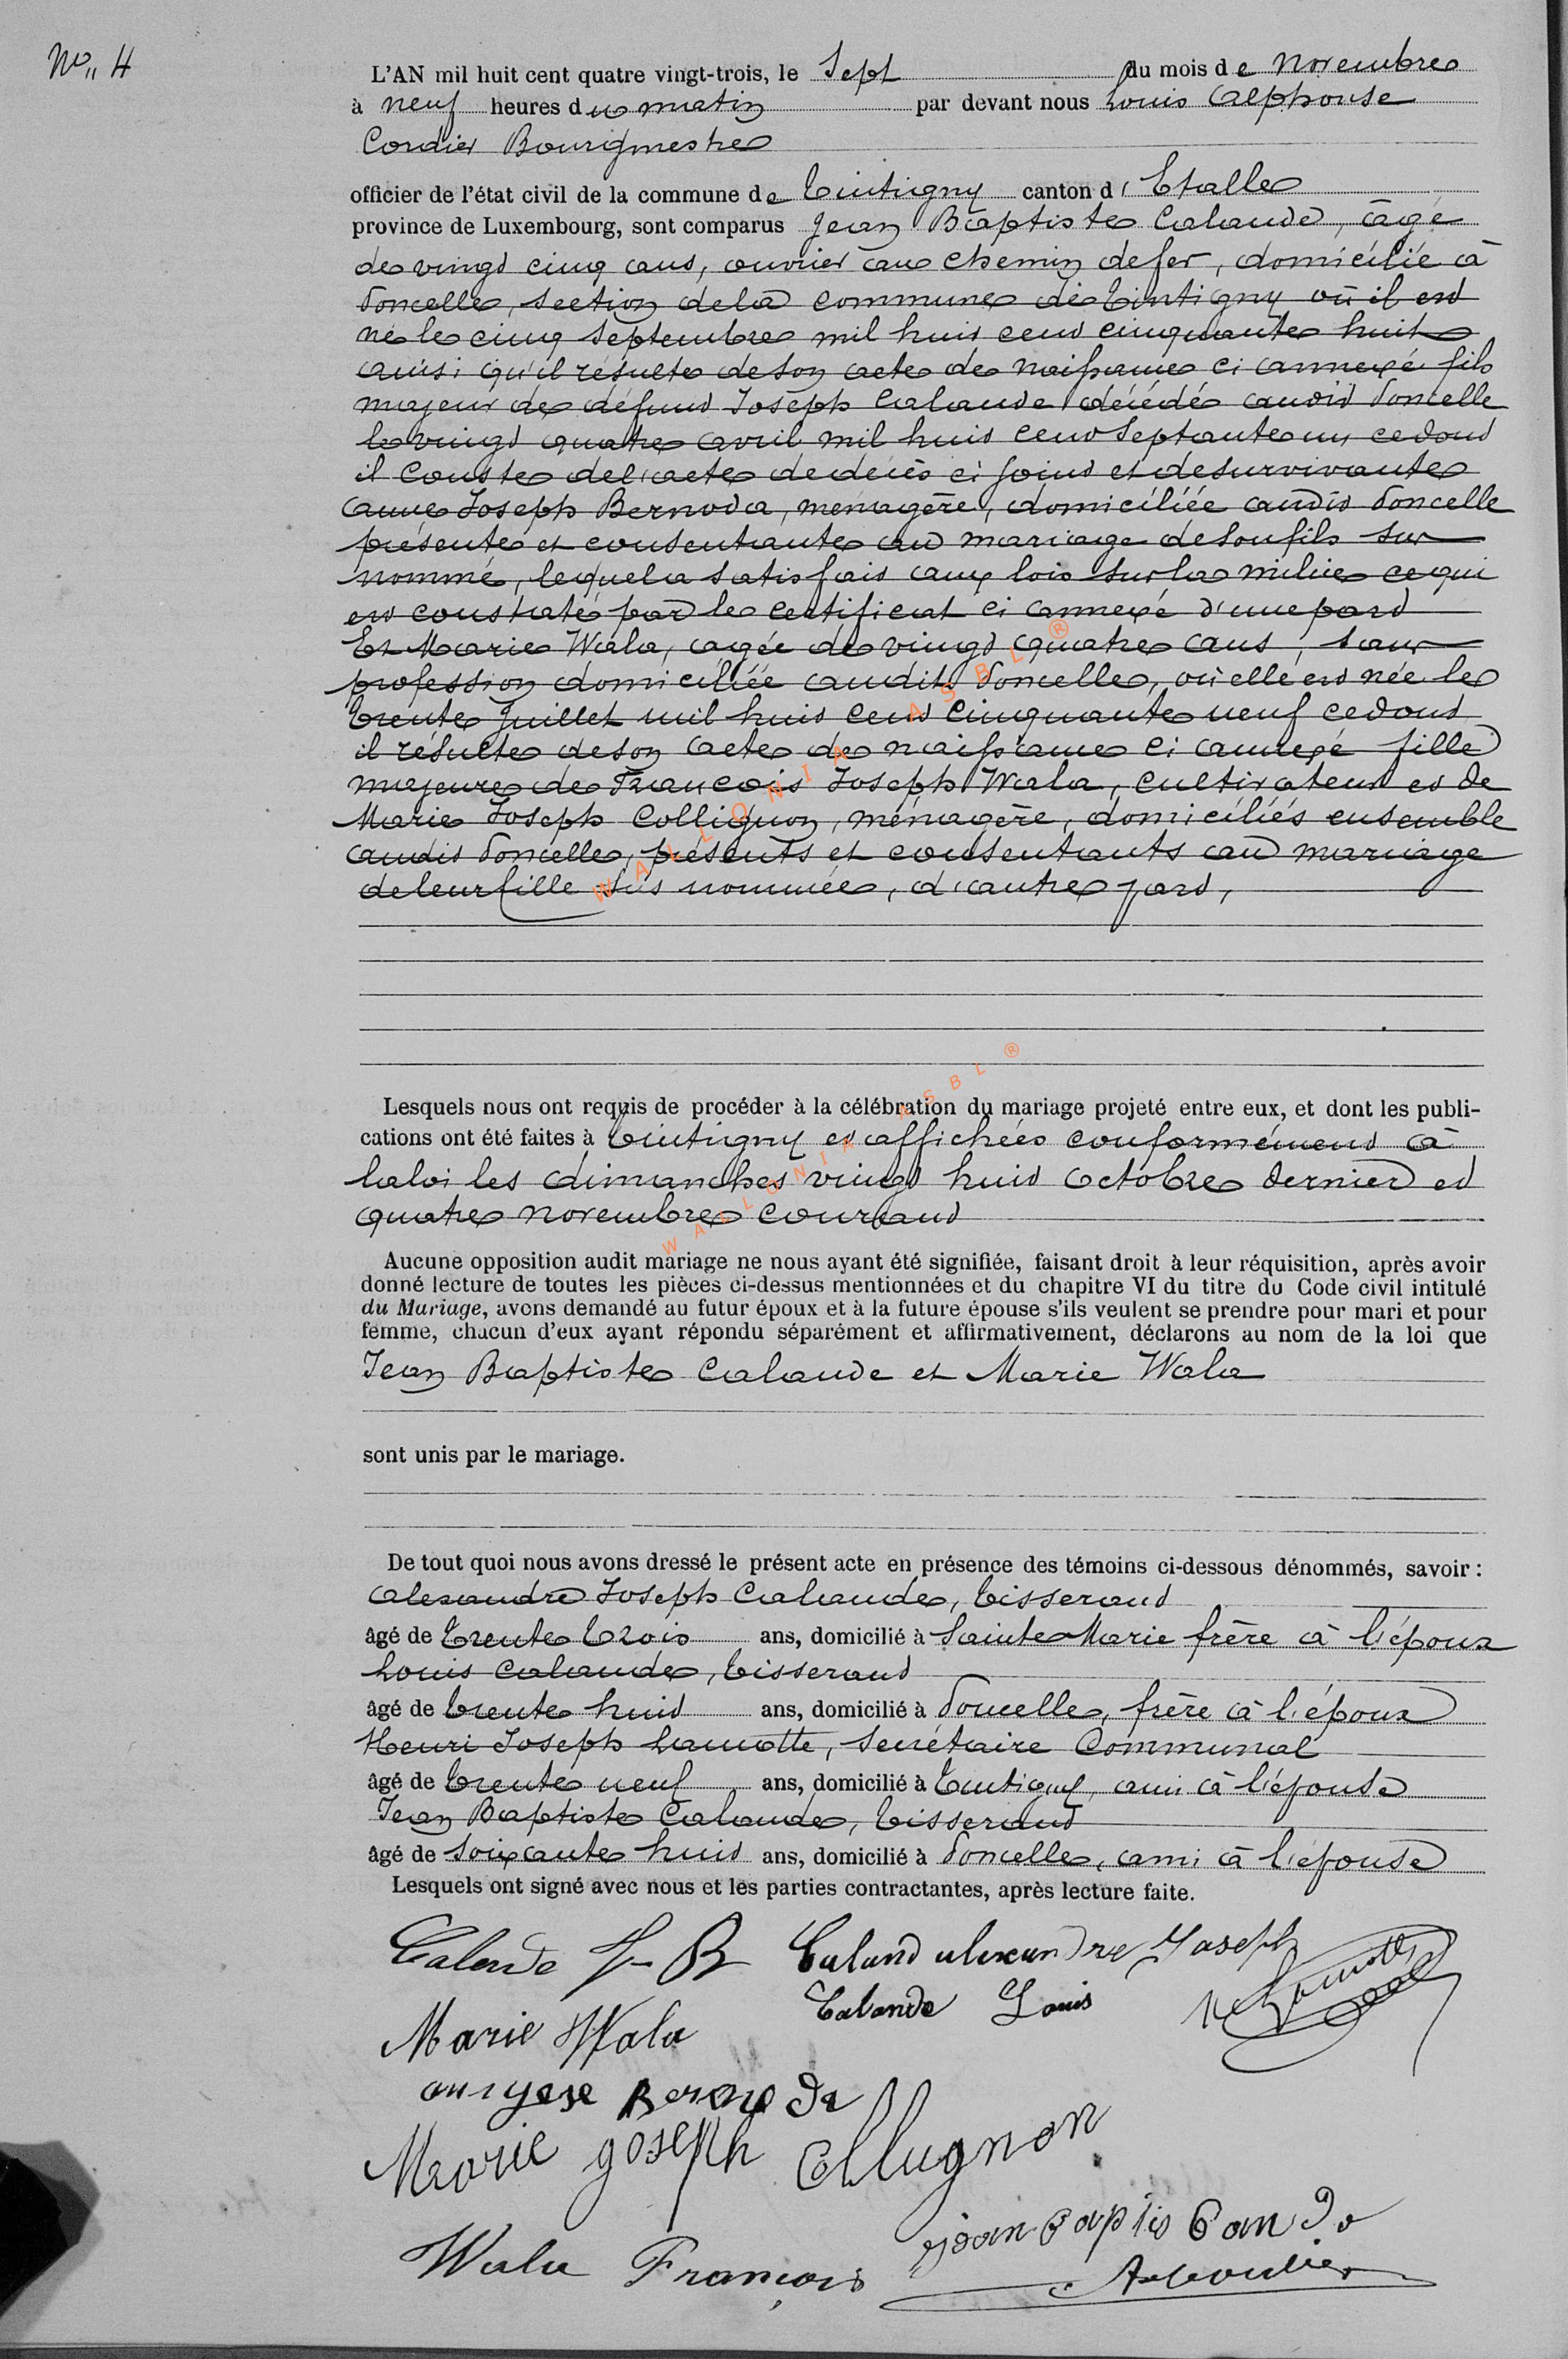 No. 4
L'AN mil huit cent quatre vingt-trois, le Sept du mois de Novembre
à neuf heures du matin par devant nous Louis Alphonse
Cordier Bourgmestre
officier de l'état civil de la commune de Tintigny canton d'Etalle
province de Luxembourg, sont comparus Jean Baptiste Calande, âgé
de vingt cinq ans, ouvrier au chemin de fer, domicilié à
Poncelle, section de la commune de Tintigny où il est
né le cinq Septembre mil huit cent cinquante huit
ainsi qu'il résulte de son acte de naissance ci annexé fils
majeur de défunt Joseph Calande décédé audit Poncelle
le vingt quatre avril mil huit cent septante un ce dont
il conste de l'acte de décès ci joint et de survivante
Anne Joseph Bernoda, ménagère, domiciliée audit Poncelle
présente et consentante au mariage de son fils sur
nommé, lequel a satisfait aux lois sur la milice ce qui
est constaté par le certificat ci annexé d'une part
Et Marie Wala, agée de vingt quatre ans, sans
profession domiciliée audit Poncelle, où elle est née le
trente Juillet mil huit cent cinquante neuf ce dont
il résulte de son acte de naissance ci annexé fille
majeure de François Joseph Wala, cultivateur et de
Marie Joseph Collignon, ménagère, domiciliés ensemble
audit Poncelle, présents et consentants au mariage
de leur fille sus nommée, d'autre part,
Lesquels nous ont requis de procéder à la célébration du mariage projeté entre eux, et dont les publi-
cations ont été faites à Tintigny et affichées conformément à
la loi les dimanches vingt huit Octobre dernier et
quatre novembre courant
Aucune opposition audit mariage ne nous ayant été signifiée, faisant droit à leur réquisition, après avoir
donné lecture de toutes les pièces ci-dessus mentionnées et du chapitre VI du titre du Code civil intitulé
du Mariage, avons demandé au futur époux et à la future épouse s'ils veulent se prendre pour mari et pour
femme, chacun d'eux ayant répondu séparément et affirmativement, déclarons au nom de la loi que
Jean Baptiste Calande et Marie Wala
sont unis par le mariage.
De tout quoi nous avons dressé le présent acte en présence des témoins ci-dessous dénommés, savoir :
Alexandre Joseph Calande, tisserand
âgé de trente trois ans, domicilié à Sainte Marie frère à l'époux
Louis Calande, tisserand
âgé de trente huit ans, domicilié à Poncelle, frère à l'époux
Henri Joseph Lamotte, Secrétaire Communal
âgé de trente neuf ans, domicilié à Tintigny, ami à l'épouse
Jean Baptiste Calande, tisserand
âgé de soixante huit ans, domicilié à Poncelle, ami à l'épouse
Lesquels ont signé avec nous et les parties contractantes, après lecture faite.
Calande J-B Caland alexandre Joseph
Calande Louis HJLamotte
Marie Wala
Bernoda
Marie Joseph Collugnon
Wala François
ACordier
WALLONIA ASBL ®
WALLONIA ASBL ®